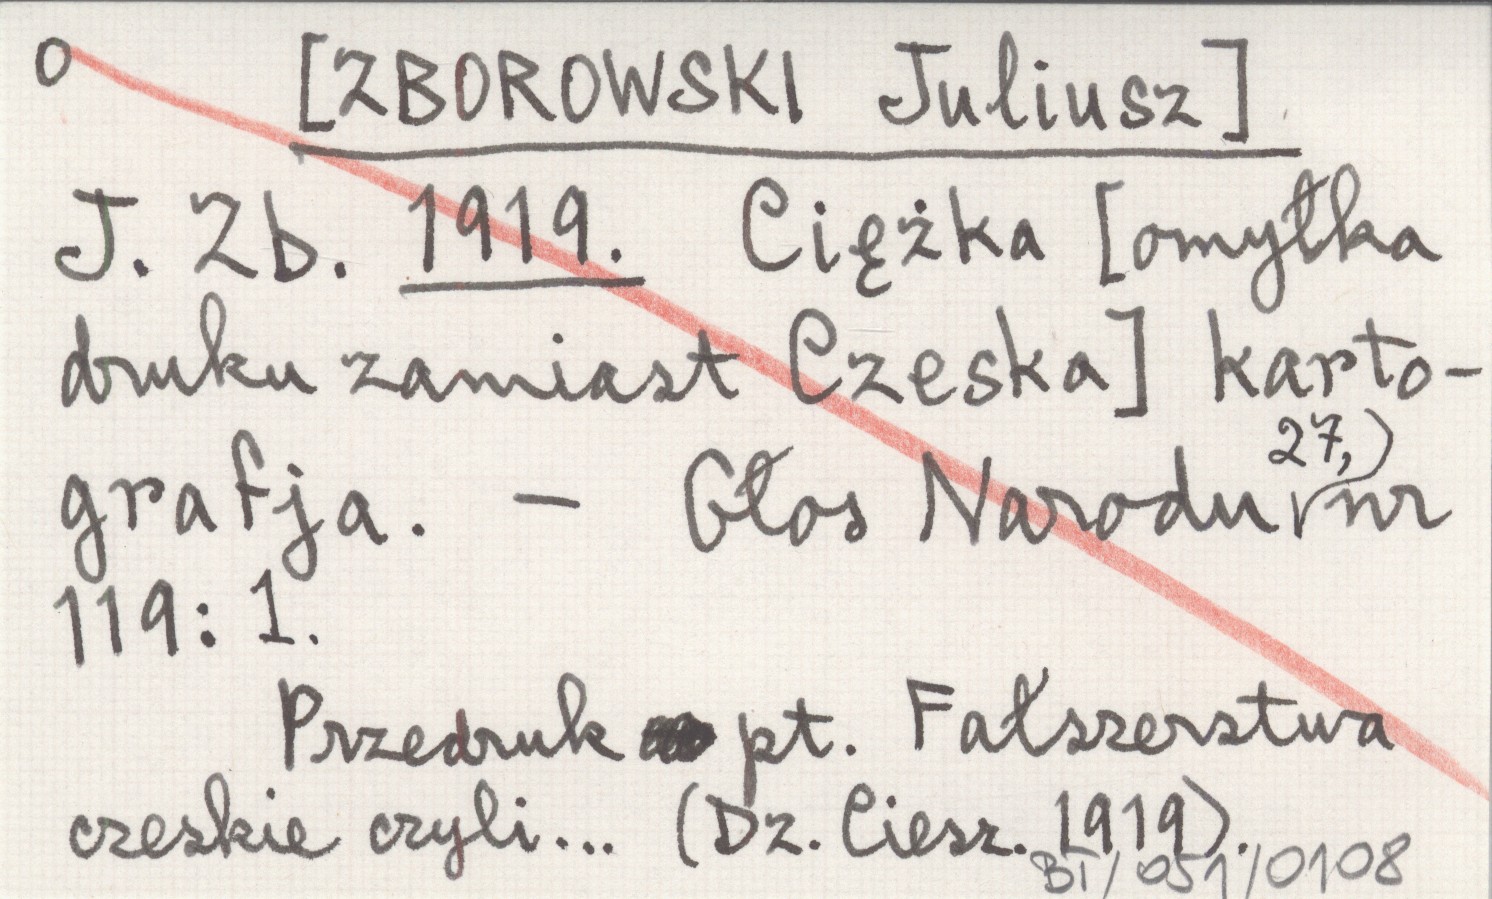 O [ZBOROWSKI Juliusz]
J. Zb. 1919. Ciężka [omyłka
druku zamiast Czeska] karto-
grafja. – Głos Narodu 27, nr
119: 1.
Przedruk pt. Fałszerstwa
czeskie czyli... (Dz. Ciesz. 1919).
BT/051/0108